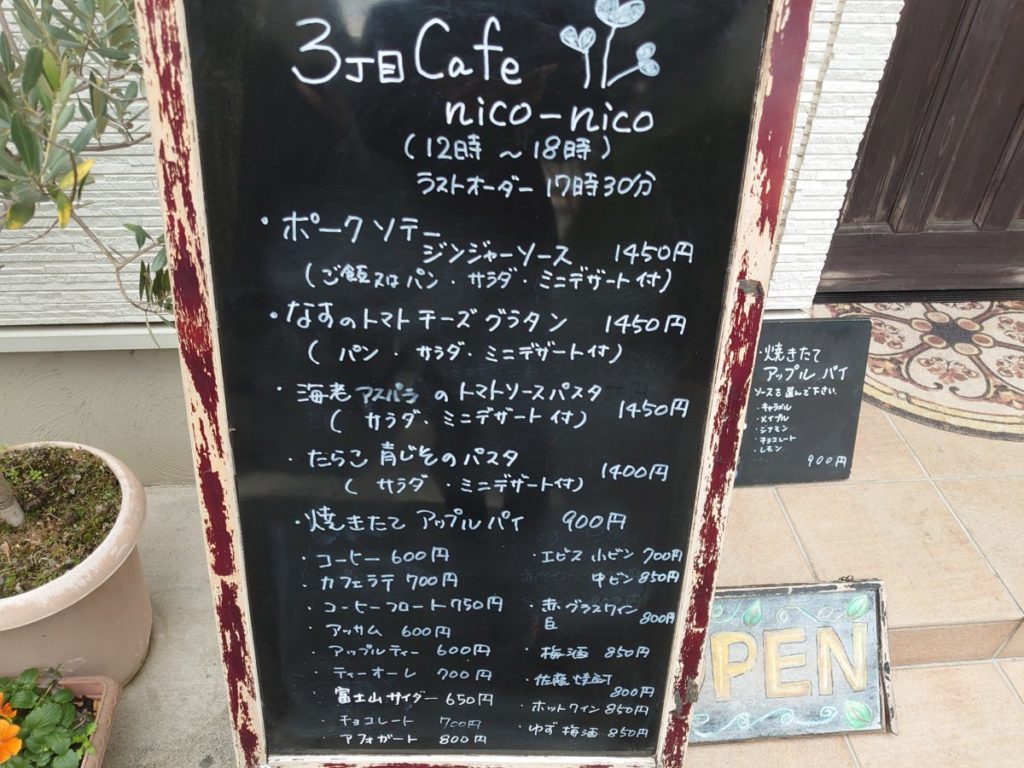 3丁目 Cafe
nico-nico
(12時 ～ 18時)
ラストオーダー 17時30分
・ポークソテー
ジンジャーソース 1450円
(ご飯又はパン・サラダ・ミニデザート付)
・なすのトマトチーズグラタン 1450円
(パン・サラダ・ミニデザート付)
・海老アスパラのトマトソースパスタ 1450円
(サラダ・ミニデザート付)
・たらこ青じそのパスタ 1400円
(サラダ・ミニデザート付)
・焼きたてアップルパイ 900円
・コーヒー 600円
・カフェラテ 700円
・コーヒーフロート 750円
・アッサム 600円
・アップルティー 600円
・ティーオーレ 700円
・富士山サイダー 650円
・チョコレート 700円
・アフォガート 800円
・エビス 小ビン 700円
中ビン 850円
・赤・グラスワイン 800円
白
・梅酒 850円
・佐藤 800円
・ホットワイン 850円
・ゆず梅酒 850円
・焼きたて
アップルパイ
ソースを選んで下さい
・キャラメル
・メイプル
・シナモン
・チョコレート
・レモン
900円
OPEN